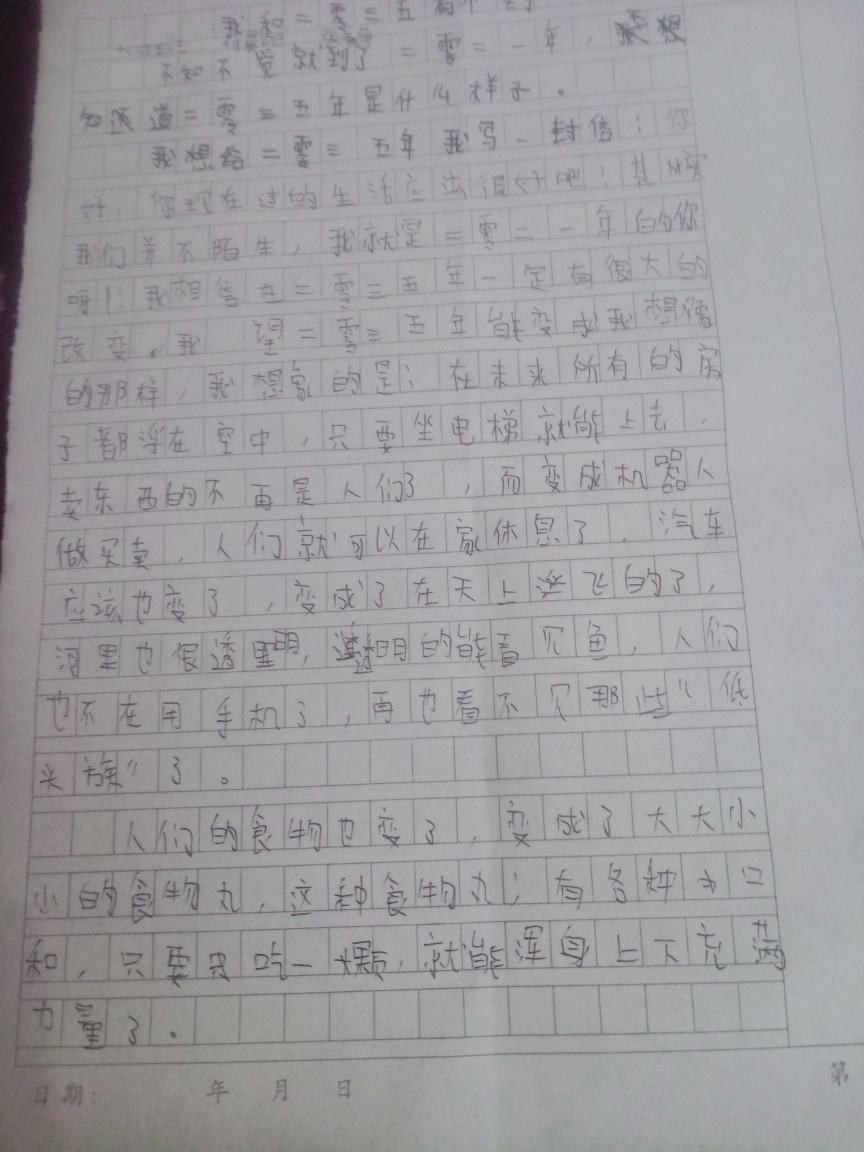 我想二零三五有个
不知不觉就到了二零二一年，我想
知道二零三五年是什么样子。
我想给二零三五年我写一封信：你
好，你现在过的生活应该很好吧！其实
我们并不陌生，我就是二零二一年的你
呀！我相信在二零三五年一定有很大的
改变。我望二零三五年能变成我想像
的那样，我想象的是：在未来所有的房
子都浮在空中，只要坐电梯就能上去，
卖东西的不再是人们了，而变成机器人
做买卖，人们就可以在家休息了，汽车
应该也变了，变成了在天上飞的了，
河里也很透明，透明的能看见鱼，人们
也不在用手机了，再也看不见那些“低
头族”了。
人们的食物也变了，变成了大大小
小的食物丸，这种食物丸；有各种口
和，只要只吃一颗，就能浑身上下充满
力量了。
日期： 年 月 日
第